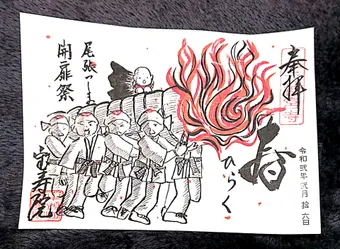 奉拝
令和弐年 弐月 拾六日
ひらく
尾張つしま
開扉祭
宝寿院